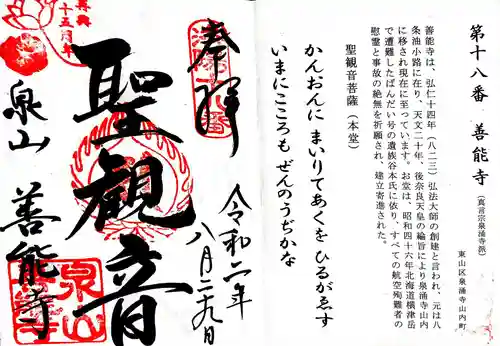 第十八番 善能寺
(真言宗泉涌寺派)
東山区泉涌寺山内町
善能寺は、弘仁十四年(八二三)弘法大師の創建と言われ、元は八
条油小路に在り、天文二十年、後奈良天皇の綸旨により泉涌寺山内
に移され現在に至っています。お堂は、昭和四十六年北海道横津岳
で遭難したばんだい号の遺族谷本氏に依り、すべての航空殉難者の
慰霊と事故の絶無を祈願され、建立寄進された。
聖観音菩薩(本堂)
かんおんに まいりてあくを ひるがゑす
いまにこころも ぜんのうぢかな
奉拝
令和二年
八月二十九日
聖観音
泉山 善能寺
泉山